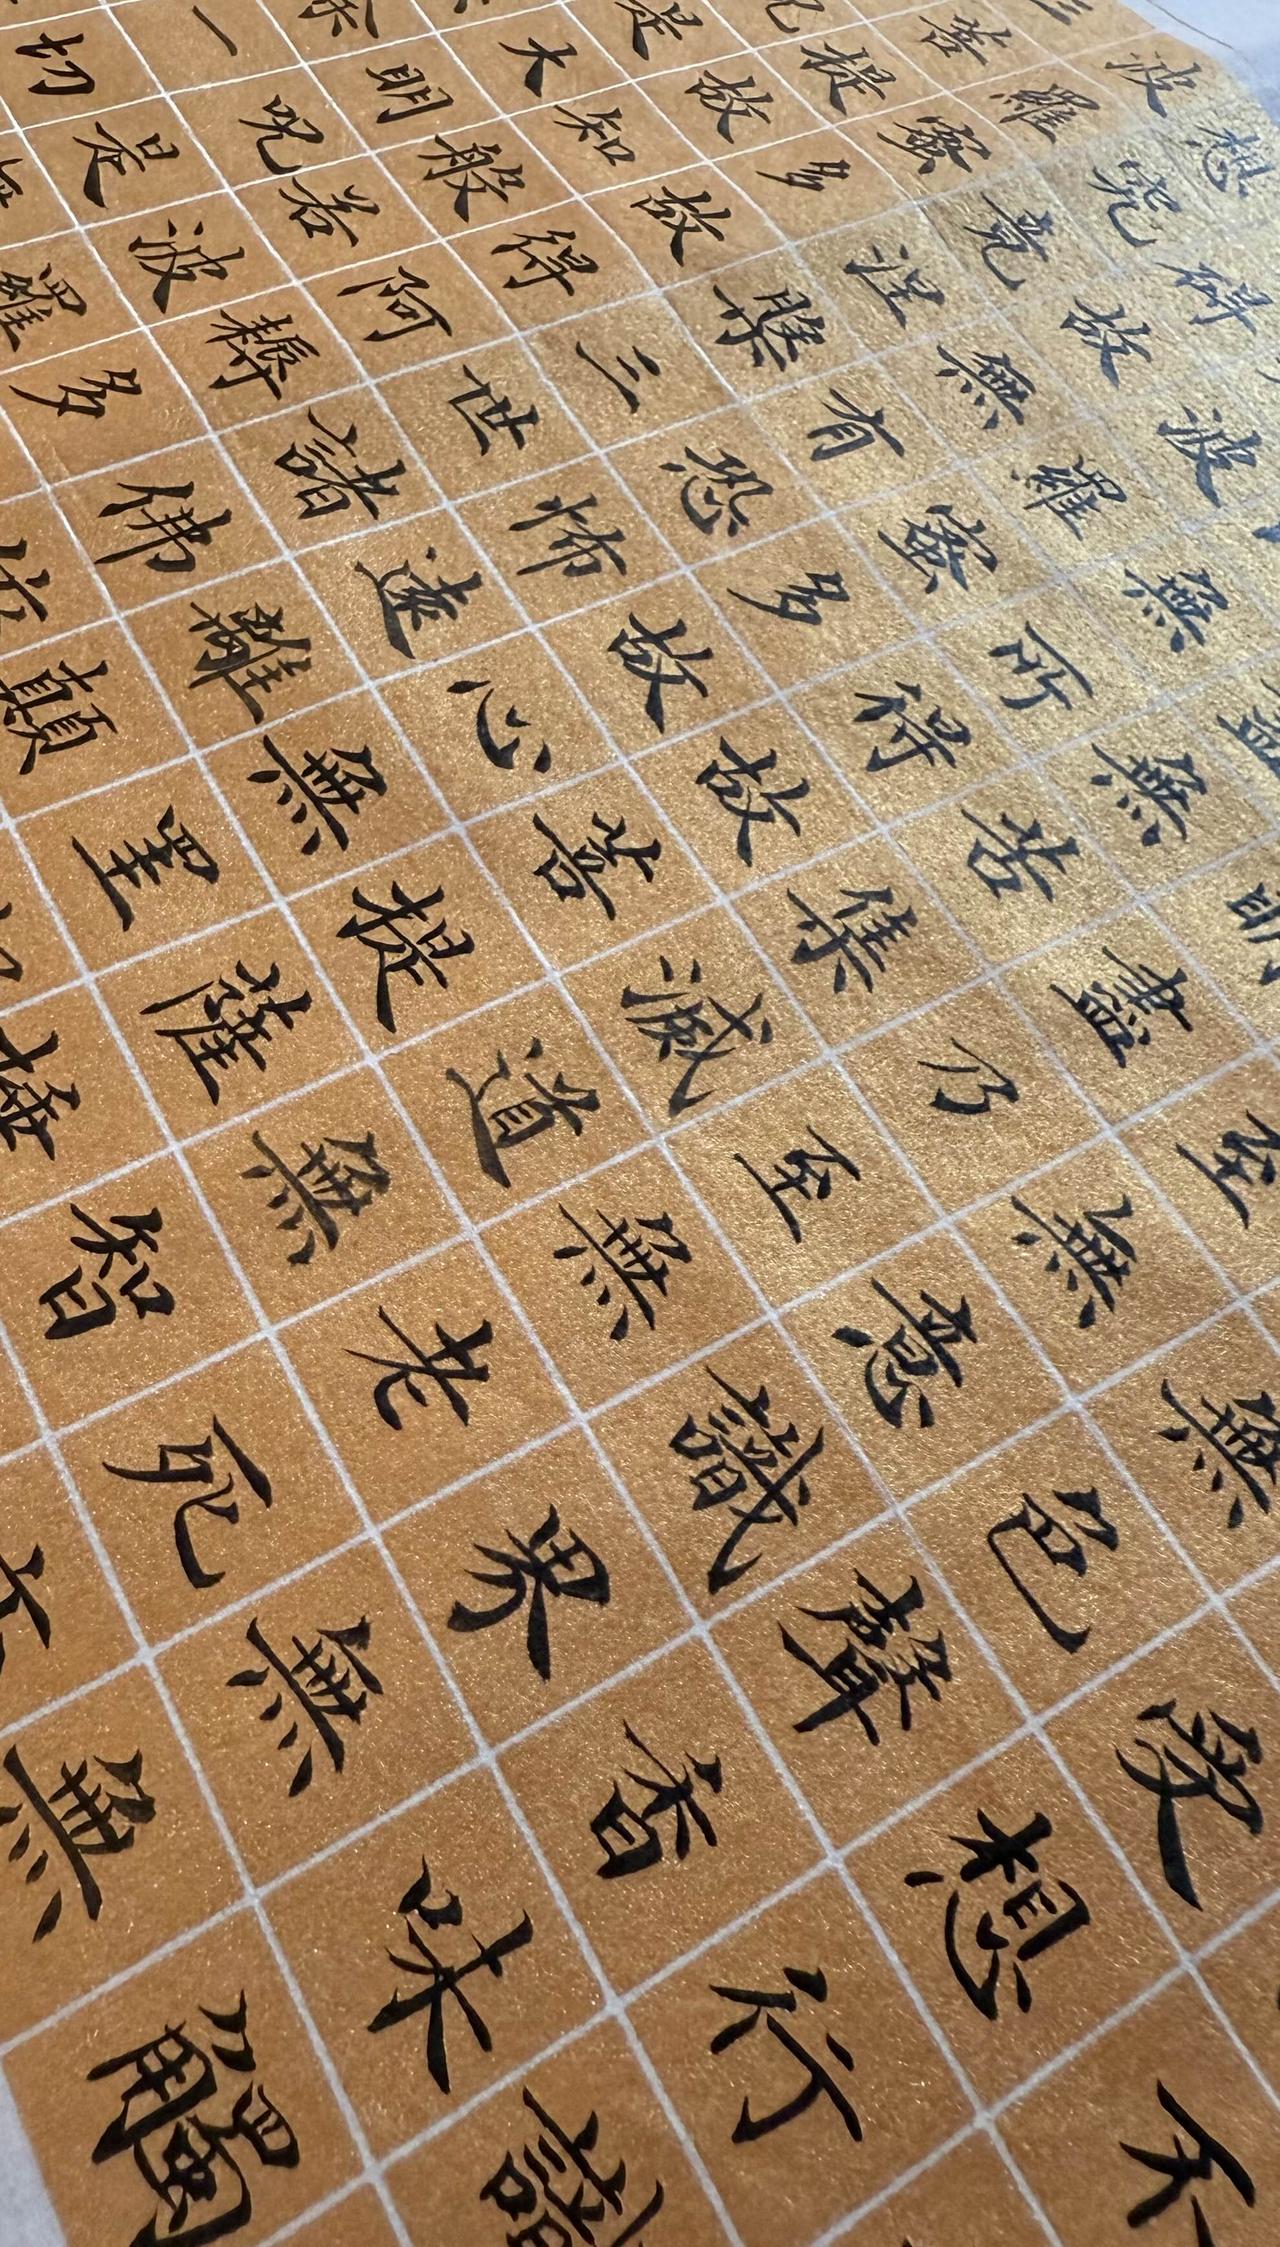 不
受想行識
無色聲香味觸
至無意識界無無
明盡乃至無老死亦
盡無苦集滅道無智
無所得故菩提薩埵
波羅蜜多故心無罣
碍故無有恐怖遠離顛
想究竟涅槃三世諸佛依
波羅蜜多故得阿耨多
三菩提故知般若波羅
咒是大明咒是
除一切